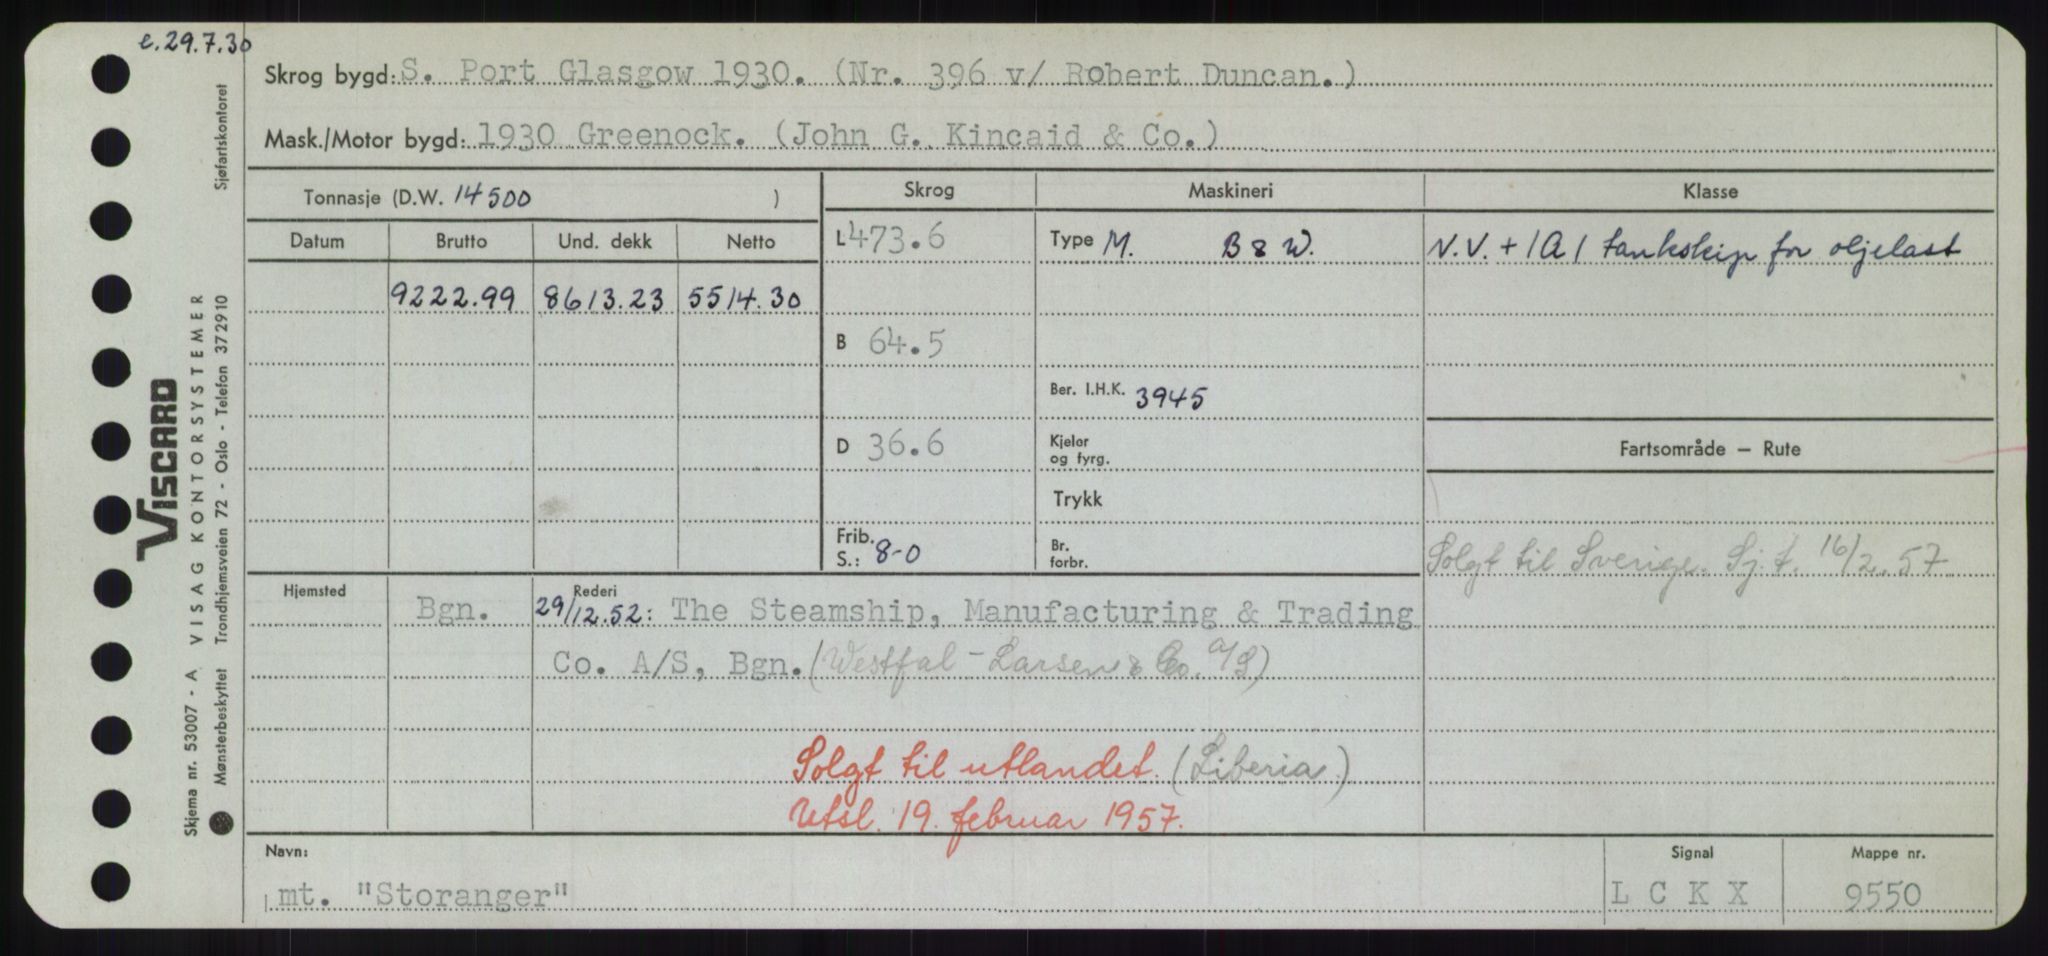 e. 29.7.30
Skrog bygd: S. Port Glasgow 1930. (Nr. 396 v/ Robert Duncan.)
Mask./Motor bygd: 1930 Greenock. (John G. Kincaid & Co.)
Tonnasje (D.W. 14500 )
Skrog
Maskineri
Klasse
Datum
Brutto
Und. dekk
Netto
L 473.6
Type M. B & W.
N.V. + 1A1 tankskip for oljelast
9222.99
8613.23
5514.30
B 64.5
Ber. I.H.K. 3945
D 36.6
Kjeler og fyrg.
Fartsområde – Rute
Trykk
Frib. S.: 8-0
Br. forbr.
Solgt til Sverige. Sj.t. 16/2.57
Hjemsted
Bgn.
Rederi
29/12.52: The Steamship, Manufacturing & Trading
Co. A/S, Bgn. (Westfal-Larsen & Co. A/S)
Solgt til utlandet. (Liberia.)
Utsl. 19. februar 1957.
Navn:
mt. "Storanger"
Signal
L C K X
Mappe nr.
9550
VISCARD
Skjema nr. 53007 - A VISAG KONTORSYSTEMER
Mønsterbeskyttet Trondhjemsveien 72 - Oslo - Telefon 372910 Sjøfartskontoret